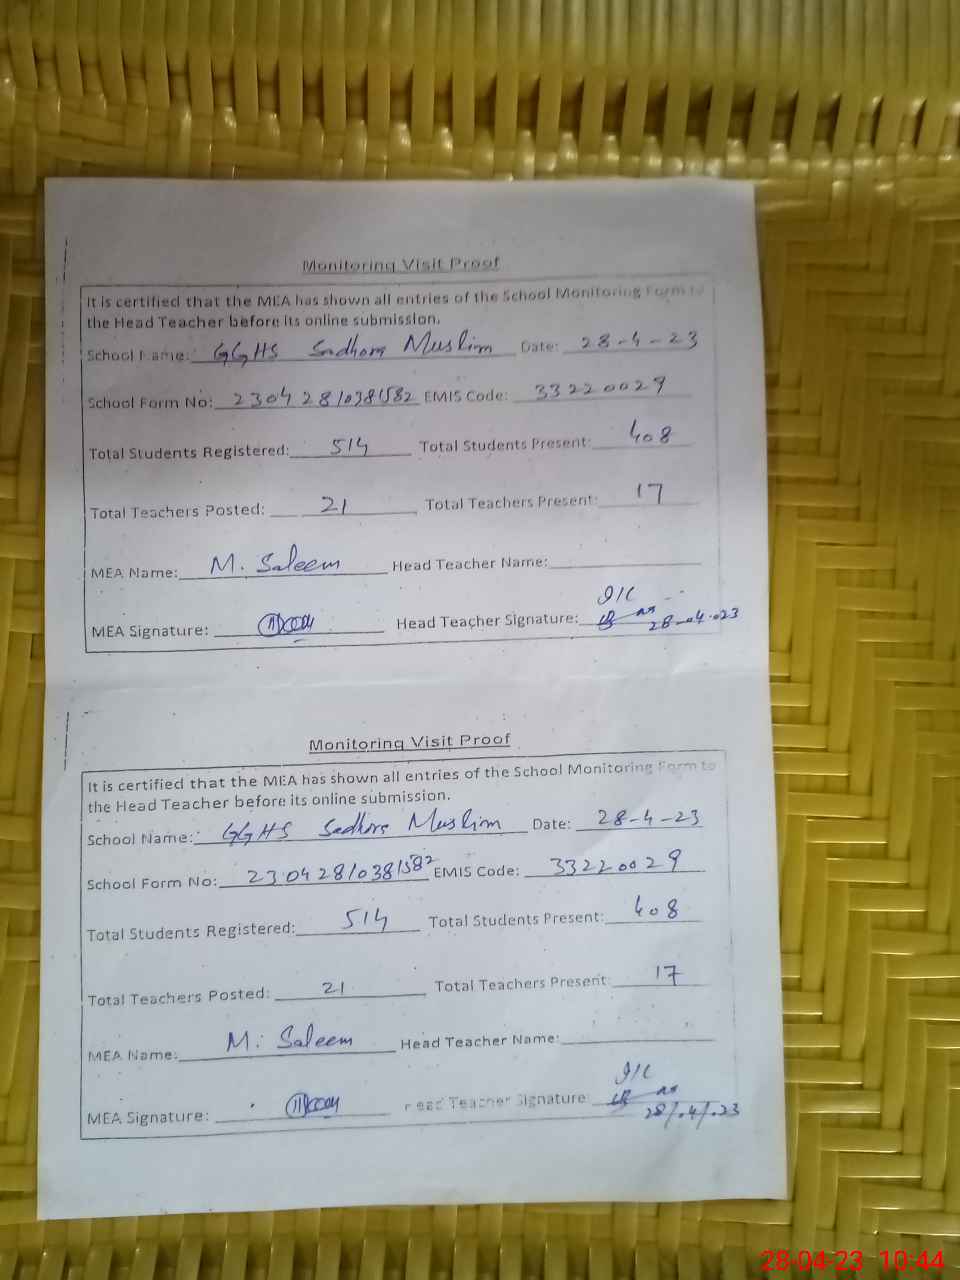 Monitoring Visit Proof
It is certified that the MEA has shown all entries of the School Monitoring Form to
the Head Teacher before its online submission.
School Name: GGHS Sadhora Muslim Date: 28-4-23
School Form No: 23042810381582 EMIS Code: 33220029
Total Students Registered: 514 Total Students Present: 408
Total Teachers Posted: 21 Total Teachers Present: 17
MEA Name: M. Saleem Head Teacher Name:
I/C
MEA Signature: Head Teacher Signature: 28-04-023
Monitoring Visit Proof
It is certified that the MEA has shown all entries of the School Monitoring Form to
the Head Teacher before its online submission.
School Name: GGHS Sadhora Muslim Date: 28-4-23
School Form No: 23042810381582 EMIS Code: 33220029
Total Students Registered: 514 Total Students Present: 408
Total Teachers Posted: 21 Total Teachers Present: 17
MEA Name: M. Saleem Head Teacher Name:
I/C
MEA Signature: Head Teacher Signature: 28/.4/.23
28-04-23 10:44